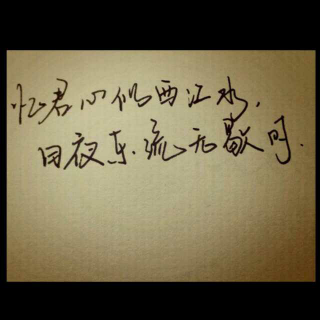 忆君心似西江水,
日夜东流无歇时.